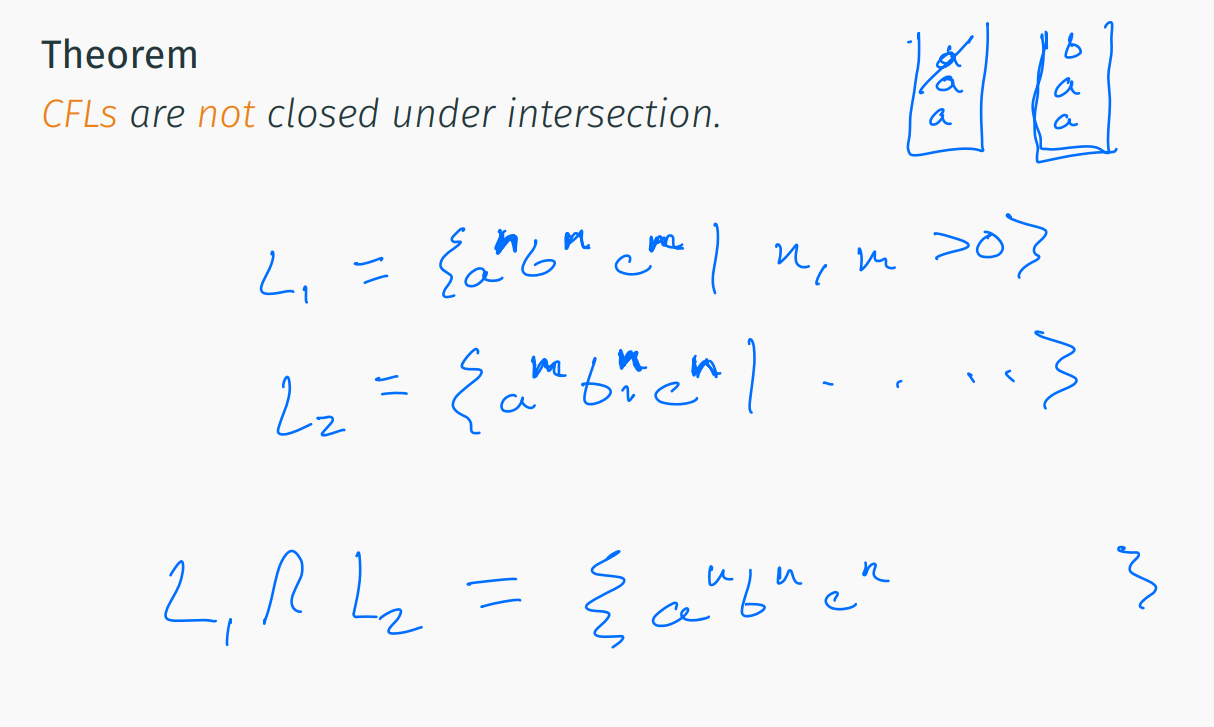 Theorem
CFLs are not closed under intersection.
a b
a a
a a
L₁ = {aⁿbⁿcᵐ | n, m >0}
L₂ = {aᵐbⁿcⁿ | - . . . }
L₁ ∩ L₂ = {aⁿbⁿcⁿ }